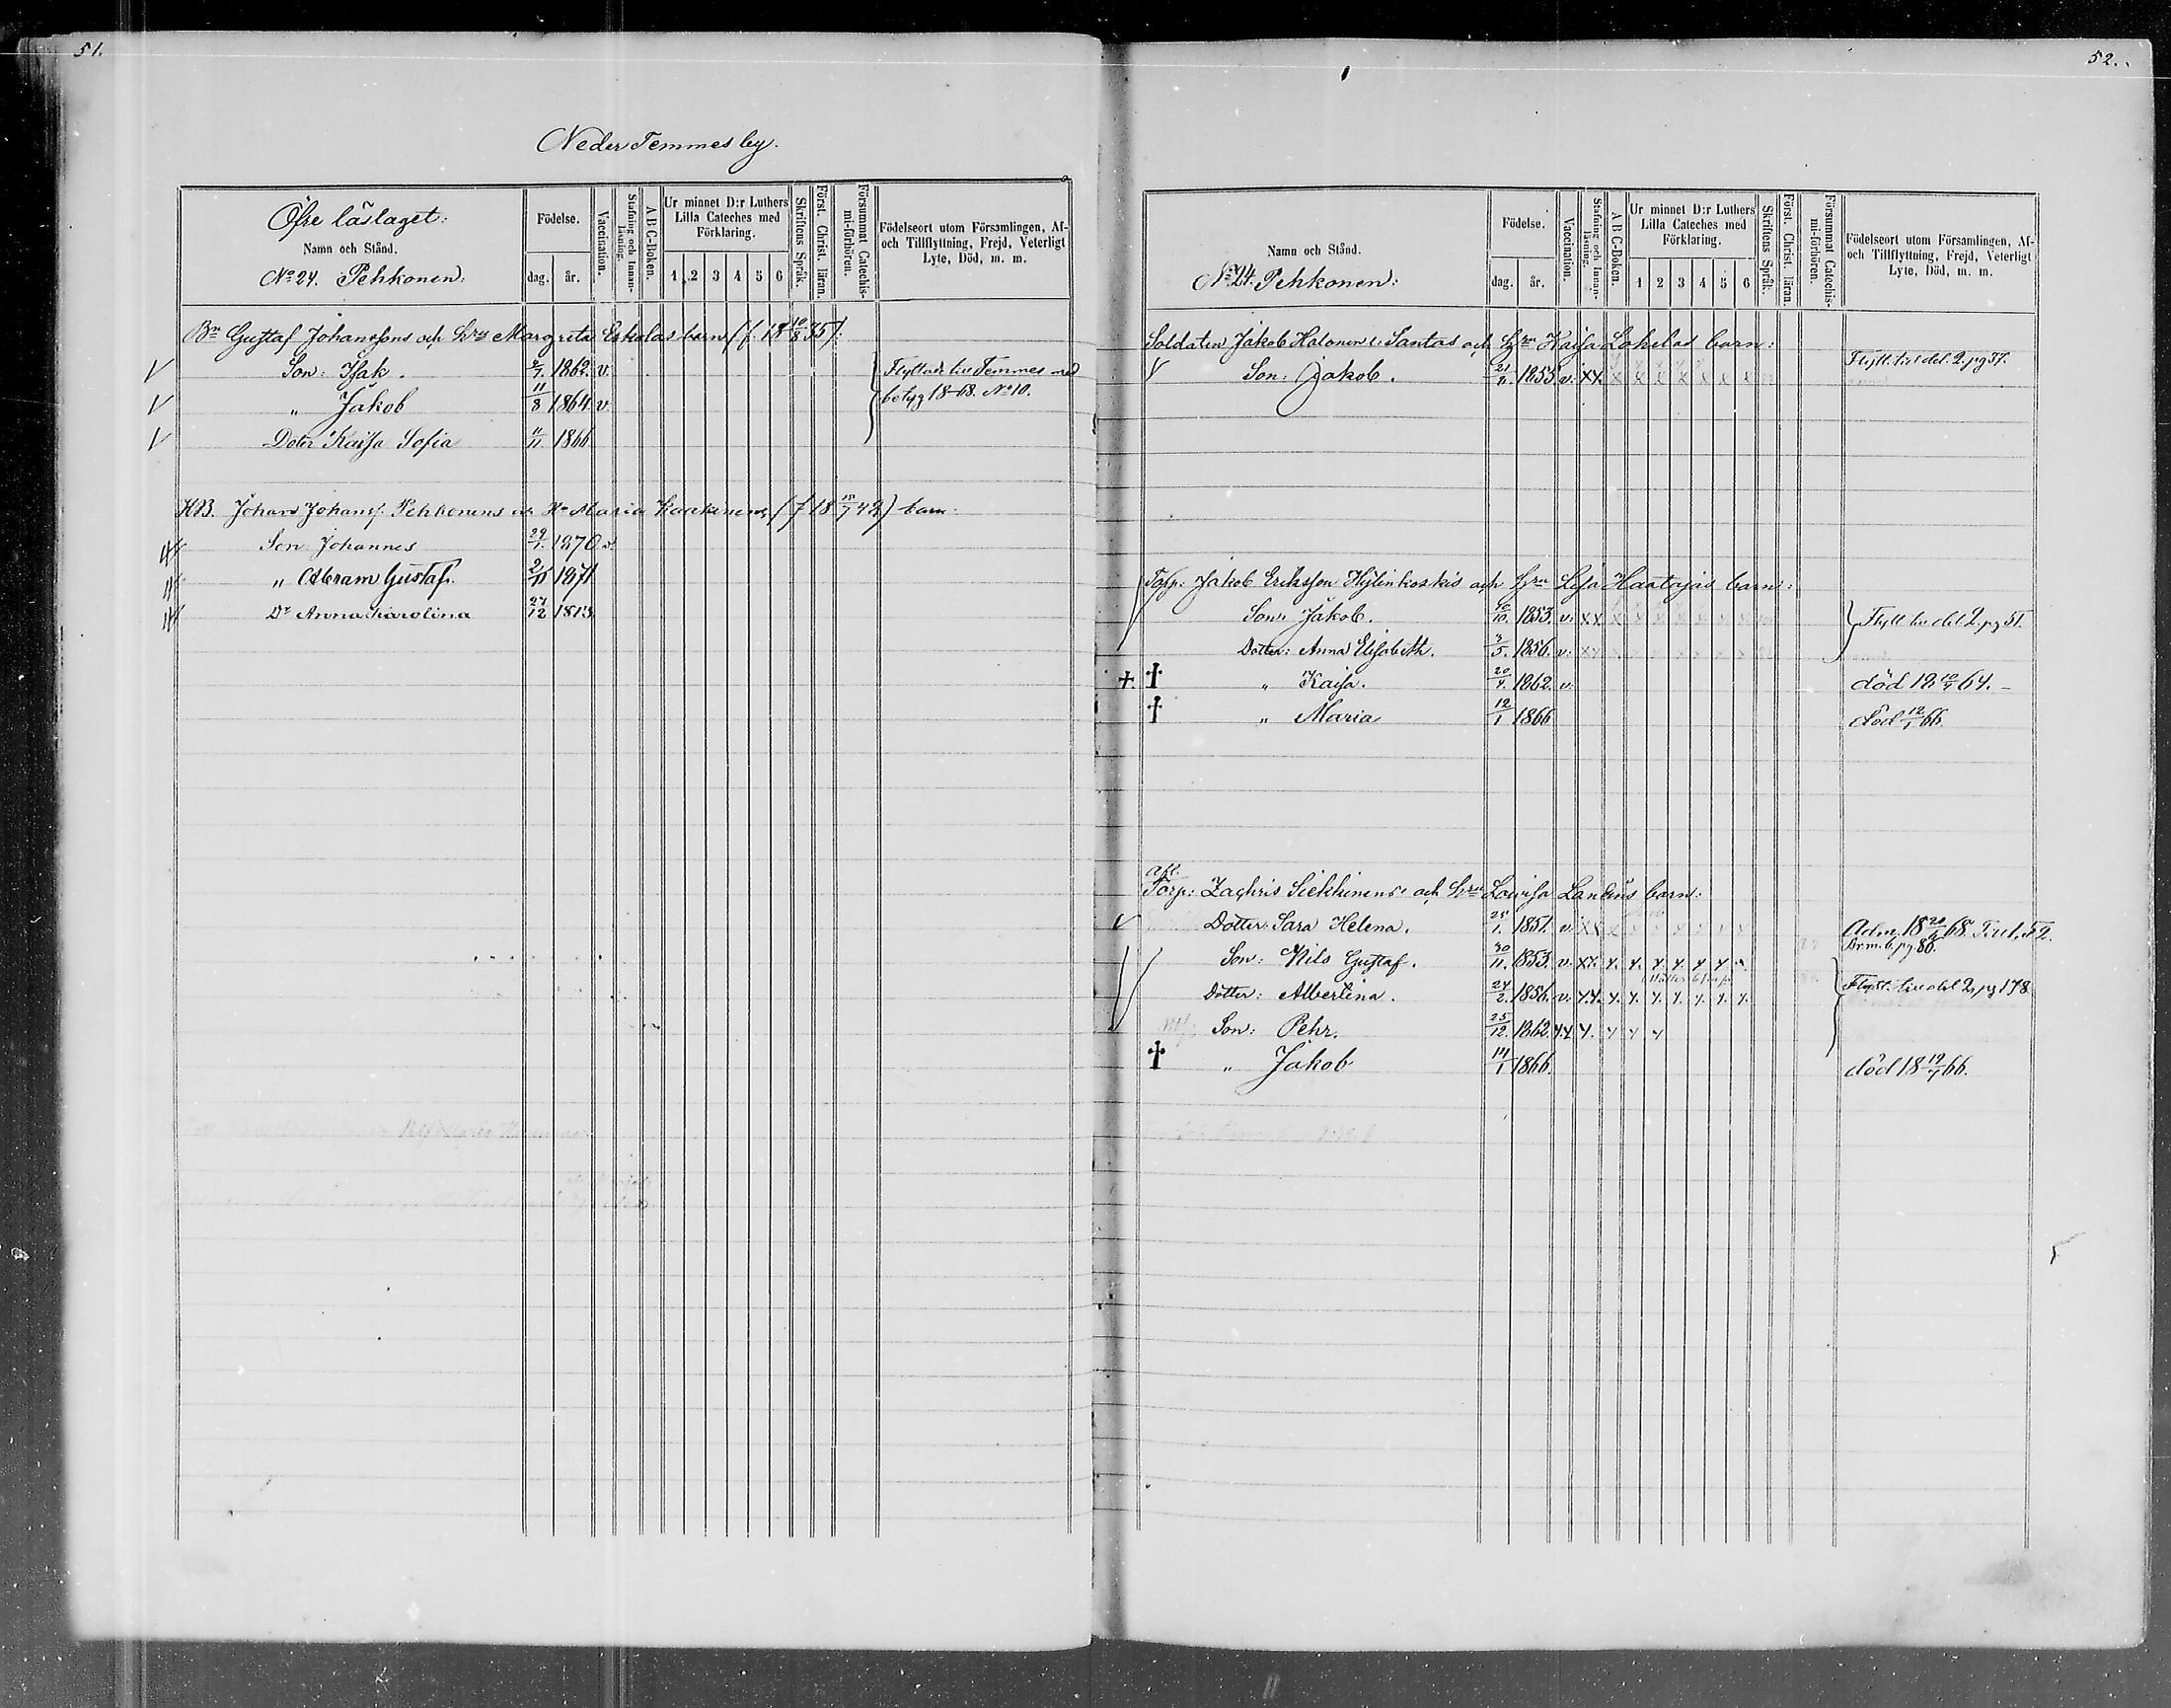 51.
Neder Temmes by.
Öfre läslaget:
Namn och Stånd.
No 24. Pehkonen:
Födelse.
dag. år.
Vaccination.
Stafning och Innanläsning.
A B C-Boken.
Ur minnet D:r Luthers
Lilla Cateches med
Förklaring.
1 2 3 4 5 6
Skriftens Språk.
Först. Christ. läran.
Försummat Catechismi-förhören.
Födelseort utom Församlingen, Af-
och Tillflyttning, Frejd, Veterligt
Lyte, Död, m. m.
Bn Gustaf Johanssons och Hrus Margreta Eskolas barn (f. 18 10/8 35).
Son: Isak. 1862. v. Flyttade till Temmes med
" Jakob 11/8 1864. v. betyg 1868. No 10.
Doter Kaisa Sofia 11/11. 1866
HB. Johan Johans. Pehkonens och Hu Maria Kaakinens (f 18 /7 42) barn.
Son Johannes 29/1. 1870 v.
" Abram Gustaf. 2/11 1871
Dr Anna Karolina 27/12 1873
52.
Namn och Stånd.
No 24. Pehkonen:
Födelse.
dag. år.
Vaccination.
Stafning och Innanläsning.
A B C-Boken.
Ur minnet D:r Luthers
Lilla Cateches med
Förklaring.
1 2 3 4 5 6
Skriftens Språk.
Först. Christ. läran.
Försummat Catechismi-förhören.
Födelseort utom Församlingen, Af-
och Tillflyttning, Frejd, Veterligt
Lyte, Död, m. m.
Soldaten Jakob Halonen l. Santas och Hru Kaisa Lokelas barn:
Son: Jakob. 1853. v. xx x x x x x x x Flytt. till del. 2. pg 37.
Torp: Jakob Eriksson Hylinkoskis och Hru Lisa Haatajas barn:
Son: Jakob. 1853. v. xx Flytt. till del 2. pg 51.
Dotter: Anna Elisabeth. 3/5. 1856. v. xx
" Kaisa. 20/4. 1862. v. död 18 64.
" Maria 12/1 1866 död 12/1 66.
Afl.
Torp: Zachris Siekkinens och Hru Lovisa barn:
Dotter: Sara Helena. 25/1. 1851. v. xx Adm. 18 68.
Son: Nils Gustaf. 30/11. 1853. v. xx. x. x. x. x. x. x. Br. m. 6. pg. 86.
Dotter: Albertina. 24/2. 1856. v. x.x. x. x. x. x. x. x. x. Flytt. till del 2, pg 178
Son: Pehr. 25/12. 1862. x.x x. x x x
" Jakob 14/1 1866. död 18 66.